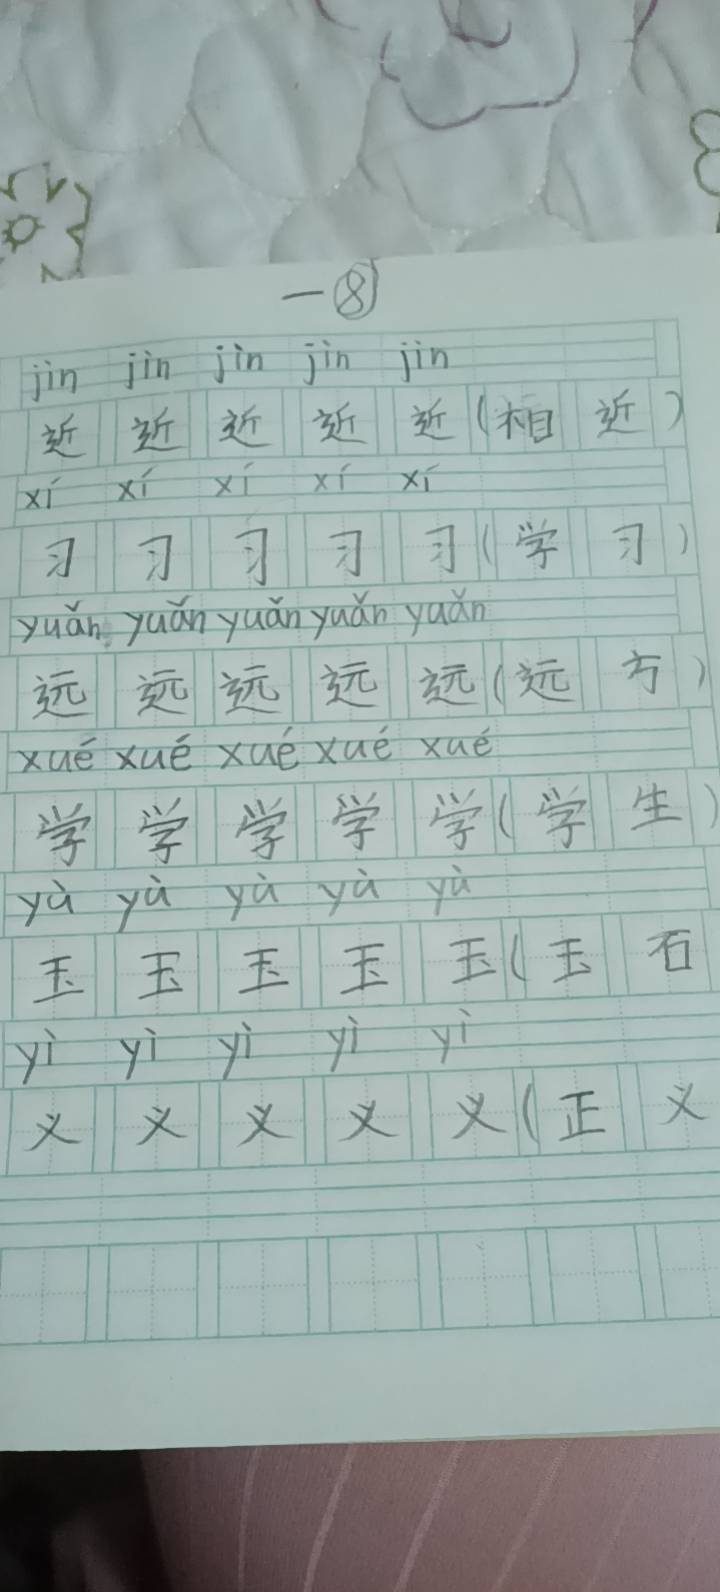 一⑧
jìn jìn jìn jìn jìn
近 近 近 近 近(相 近)
xí xí xí xí xí
习 习 习 习 习(学 习)
yuǎn yuǎn yuǎn yuǎn yuǎn
远 远 远 远 远(远 方)
xué xué xué xué xué
学 学 学 学 学(学 生)
yù yù yù yù yù
玉 玉 玉 玉 玉(玉 石
yì yì yì yì yì
义 义 义 义 义(正 义